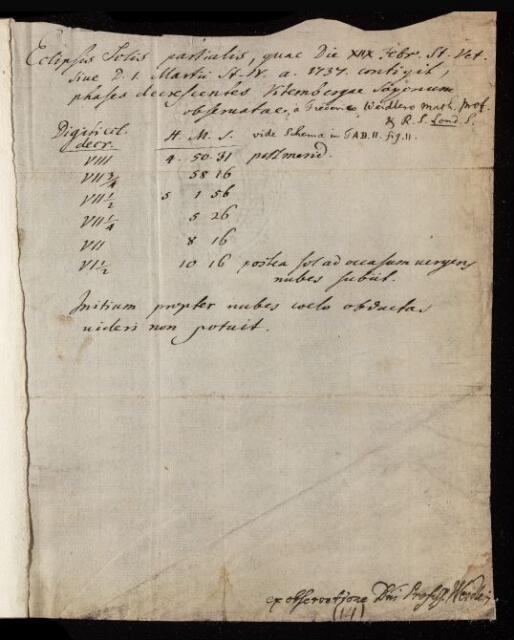 Eclipsis Solis partialis, quae Die XIIX Febr. St. Vet.
sive D. 1. Martii St. N. a. 1737. contigit,
phases decrescentes Vitembergae Saxonum
observatae, a Frederic Weidlero math. prof.
& R. S. Lond S.
Digiti ecl. H. M. S. vide Schema in TAB. II. fig. 11.
decr.
VIII 4. 50. 31 post merid.
VII ¾ 58 16
VII ½ 5 1 56
VII ¼ 5 26
VII 8 16
VI ½ 10 16 postea sol ad occasum vergens
nubes subiit.
Initium propter nubes coelo obductas
videri non potuit.
ex observatione Dni Profess.
(14)